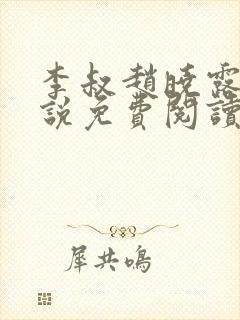 李叔趙曉露
說免費閱讀
犀共鳴